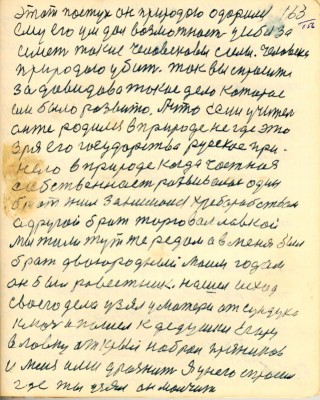 этот поступ он природою одарили 163
ему его ум дал возможност убиза
имет такие человекови силы. человека
природою убит. так вы спросите
за давидова такое дело которае
им было розвито. Лито если учител
анте родилс в природе не где это
зря его государства руское при
нело в природе когда частная
собственност развивалас один
брат жил занималс хребаробством
а другой брат торговал лавкой
мы жили тут же редом а вменя был
брат двоюродный маим годам
он был ровестник. нашел исход
своего дела узял у матери от сундука
ключ и пошел к дедушки Егору
в лавку аткрыл набрал пряников
и меня ими дразнит. Я унего спросил
где ты узял он молчит